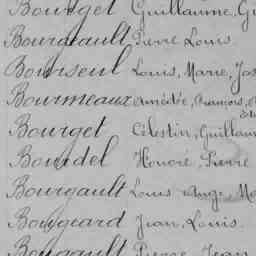 Bourget Guillaume, Gu
Bourgault Pierre Louis
Bourseul Louis, Marie, Jos
Bourmeaux Amédée, François,
Bourget Célestin, Guillaum
Bourdel Honoré, Pierre
Bourgault Louis Ange, Ma
Bougeard Jean, Louis.
Bougault Pierre, Jean